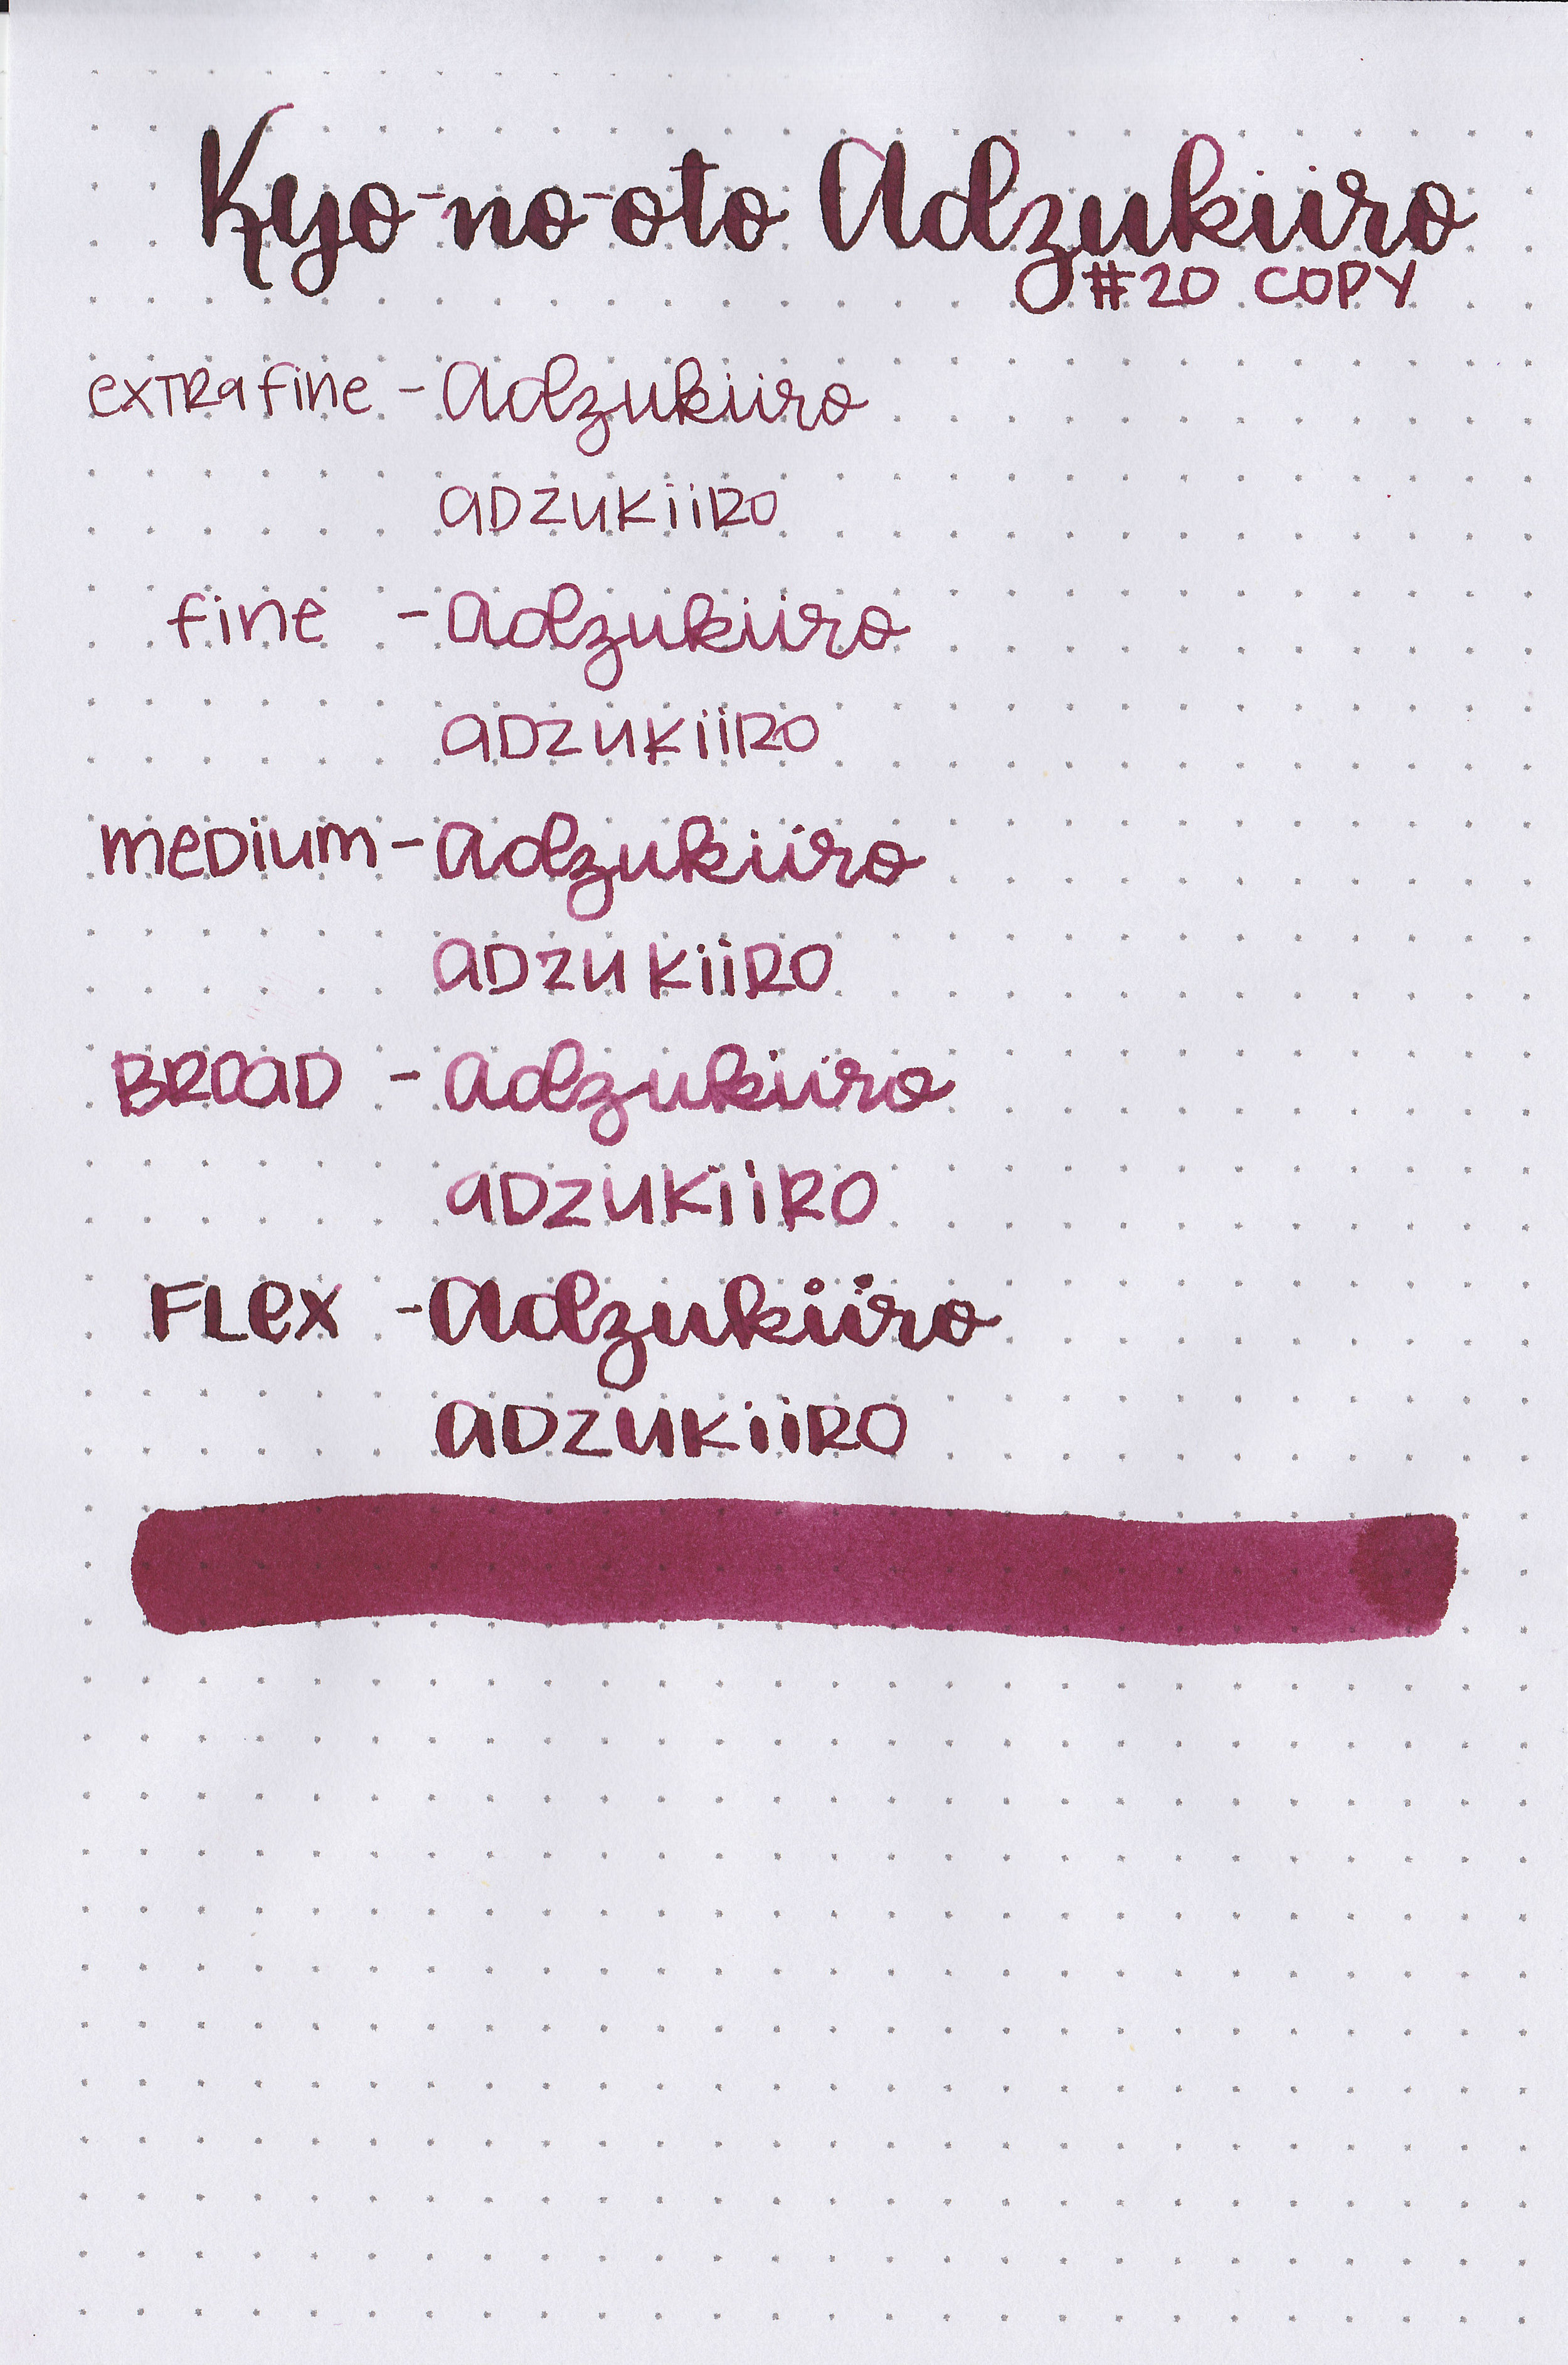 Kyo-no-oto Adzukiiro
#20 COPY
extra fine - Adzukiiro
ADZUKiiRO
fine - Adzukiiro
ADZUKiiRO
meDium - Adzukiiro
ADZUKiiRO
BROAD - Adzukiiro
ADZUKiiRO
FLex - Adzukiiro
ADZUKiiRO